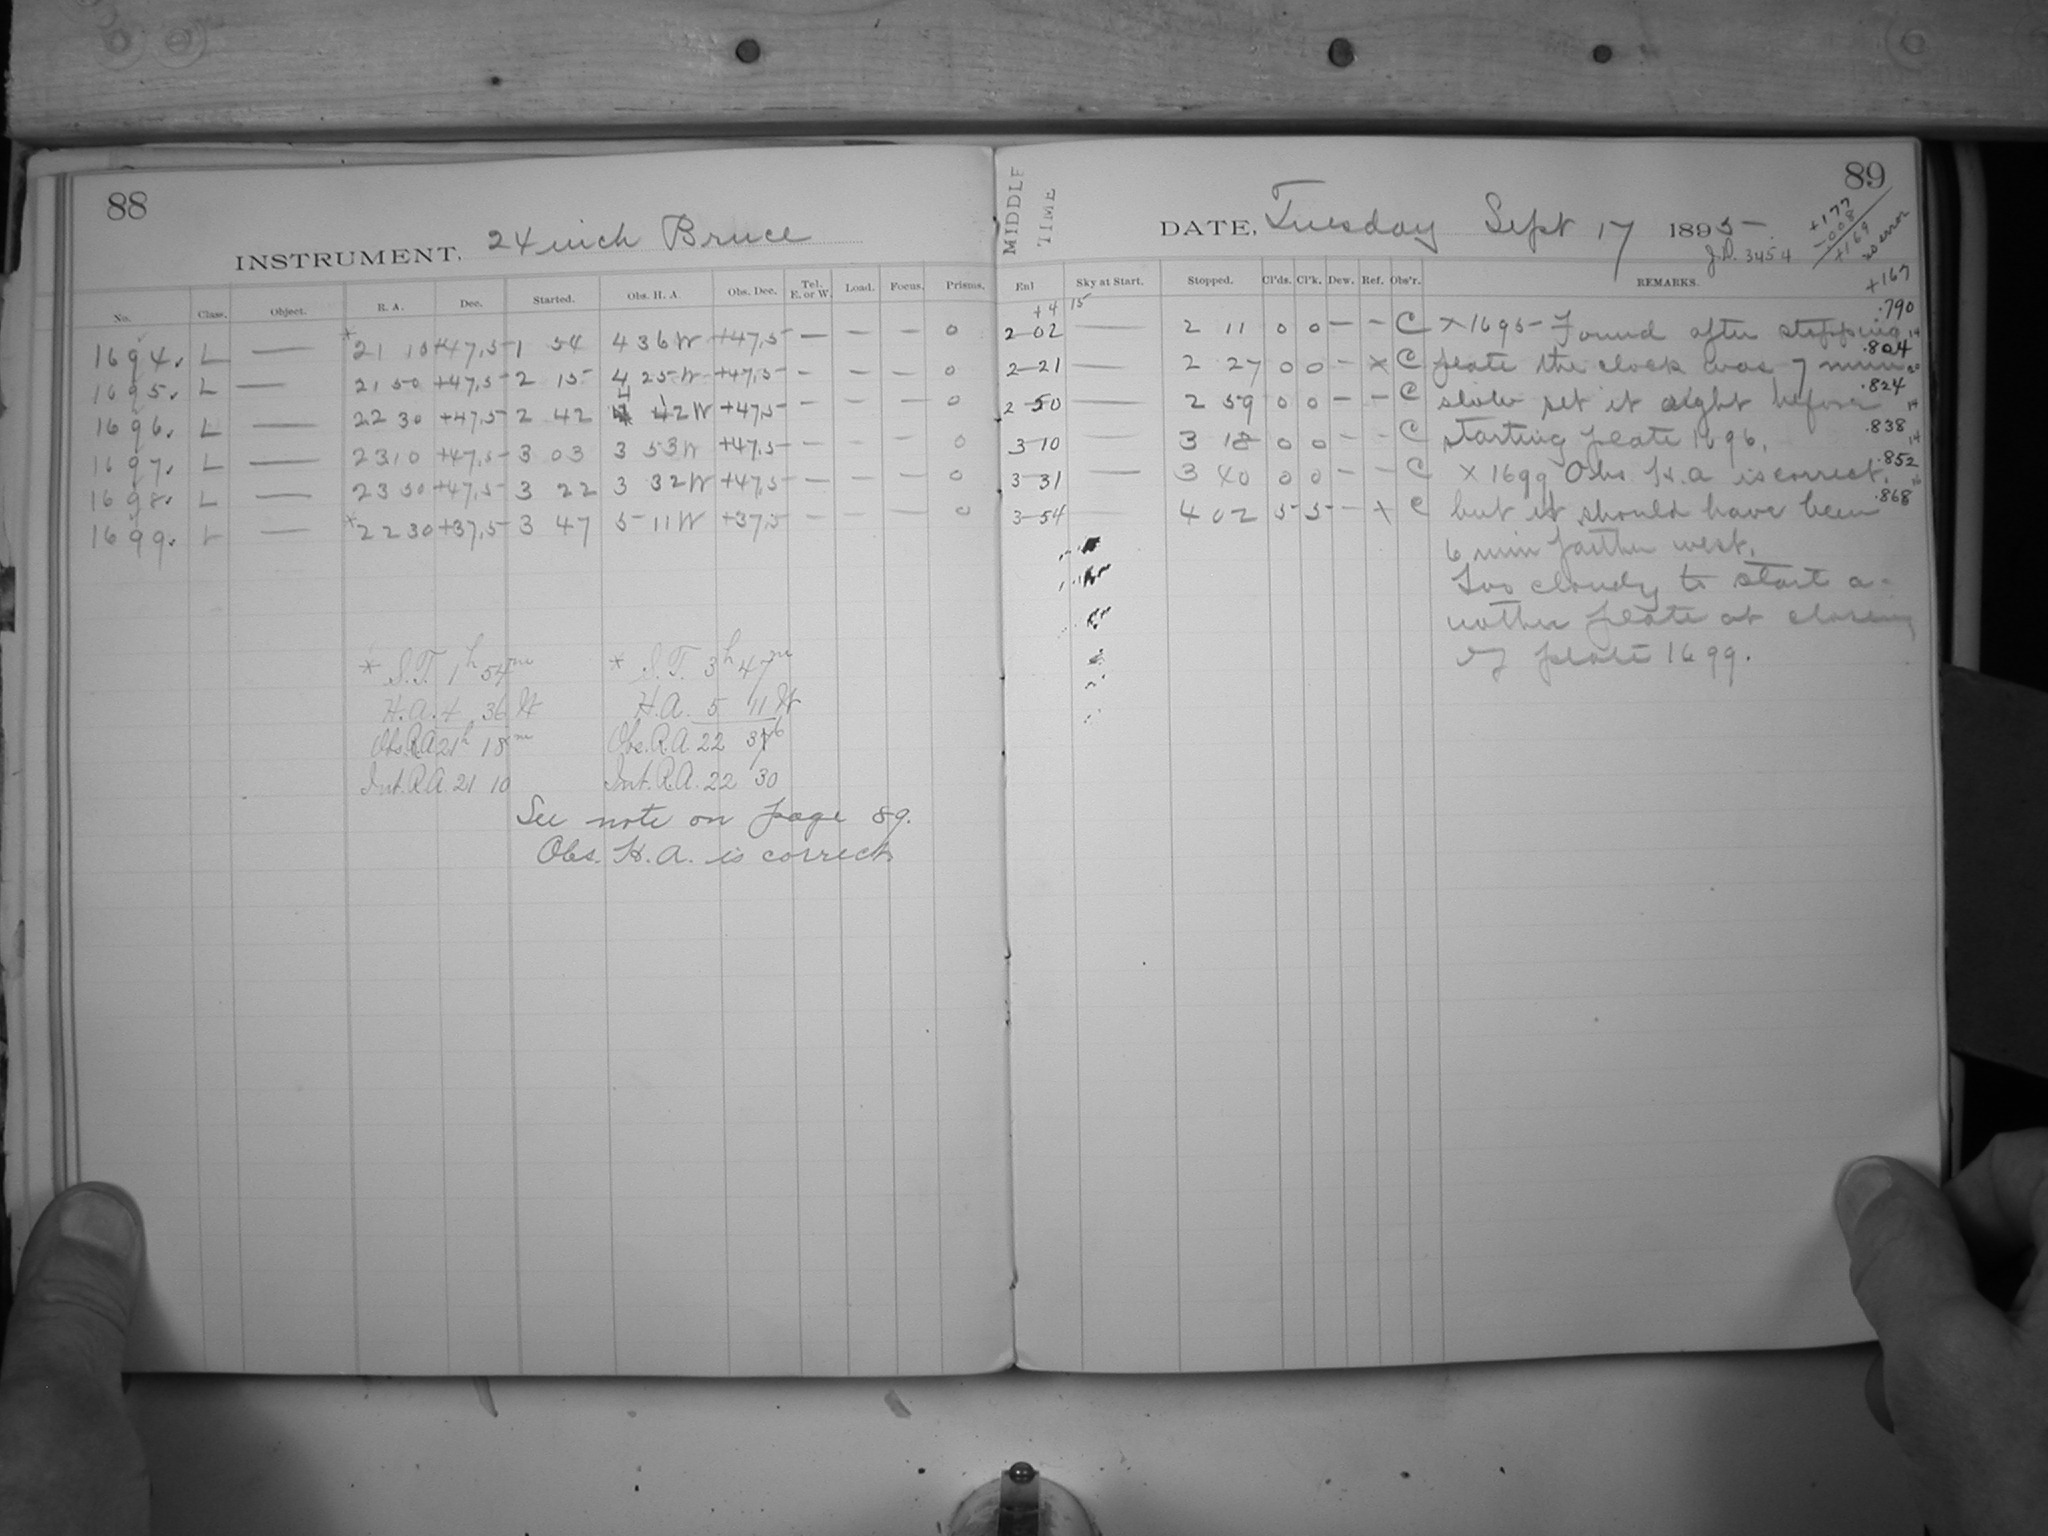 88
INSTRUMENT, 24 inch Bruce
No. Class. Object. R. A. Dec. Started. Obs. H. A. Obs. Dec. Tel. E. or W. Load. Focus. Prisms.
1694. L — *21 10 +47,5 1 54 4 36 W +47,5 — — — 0
1695. L — 21 50 +47,5 2 15 4 25 W +47,5 — — — 0
1696. L — 22 30 +47,5 2 42 4 42 W +47,5 — — — 0
1697. L — 23 10 +47,5 3 03 3 53 W +47,5 — — — 0
1698. L — 23 50 +47,5 3 22 3 32 W +47,5 — — — 0
1699. L — *22 30 +37,5 3 47 5 11 W +37,5 — — — 0
* S.T. 1h 54m
H.A. 4 36 W
Obs. R.A 21h 18m
Int. R.A. 21 10
* S.T. 3h 47m
H.A. 5 11 W
Obs. R.A. 22 36
Int. R.A. 22 30
See note on page 89.
Obs. H. A. is correct
89
MIDDLE TIME
DATE, Tuesday Sept 17 1895
J.D. 3454
+177
-008
+169
no error
+167
Exl Sky at Start. Stopped. Cl'ds. Cl'k. Dew. Ref. Obs'r. REMARKS.
+4 15
2-02 — 2 11 0 0 — — C
2-21 — 2 27 0 0 — X C
2-50 — 2 59 0 0 — — C
3-10 — 3 18 0 0 — — C
3-31 — 3 40 0 0 — — C
3-54 — 4 02 5 5 — X C
X 1695 - Found after stopping .790 14
plate the clock was 7 min .804 20
slow set it aright before .824 14
starting plate 1696. .838 14
X 1699 Obs. H.a is correct. .852 16
but it should have been .868
6 min farther west.
Too cloudy to start a-
nother plate at closing
of plate 1699.